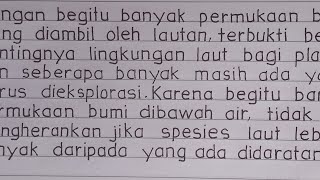 ngan begitu banyak permukaan b
ng diambil oleh lautan, terbukti be
ntingnya lingkungan laut bagi pla
n seberapa banyak masih ada ya
rus dieksplorasi. Karena begitu ban
rmukaan bumi dibawah air, tidak
ngherankan jika spesies laut leb
nyak daripada yang ada didaratan